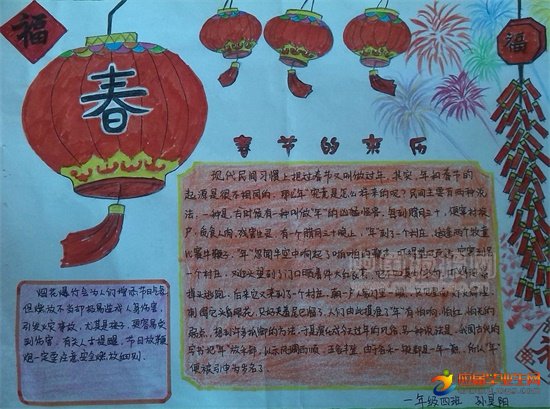 福
春
福
春节的来历
现代民间习惯上把过春节又叫做过年。其实,年和春节的
起源是很不相同的。那么"年"究竟是怎么样来的呢?民间主要有两种说
法:一种是,古时候有一种叫做"年"的凶猛怪兽,每到腊月三十,便窜村挨
户,觅食人肉,残害生灵。有一个腊月三十晚上,"年"到了一个村庄,适逢两个牧童
比赛牛鞭子。"年"忽闻半空中响起了啪啪的鞭声,
一个村庄,又迎头望到了门口晒着件大红衣裳,
掉头逃跑。后来它又来到了一个村庄,朝一户人家门里一瞧,
只好夹着尾巴溜了。人们由此摸准了"年"有怕响,怕红,怕光的
弱点,想到许多抵御的方法,于是演化成今天过年的风俗。另一种说法是,我国古代的
字书把"年"放禾部,以示风调雨顺,五谷丰登。由于谷禾一般都是一年一熟。所以"年"
便被引申为岁名了。
烟花爆竹会为人们增添节日气氛
但燃放不当却极易造成人身伤害,
引发火灾事故,尤其是孩子,更容易受
到伤害。有关人士提醒,节日放鞭
炮一定要注意安全燃放细则。
一年级四班 孙昊阳
应届毕业生网